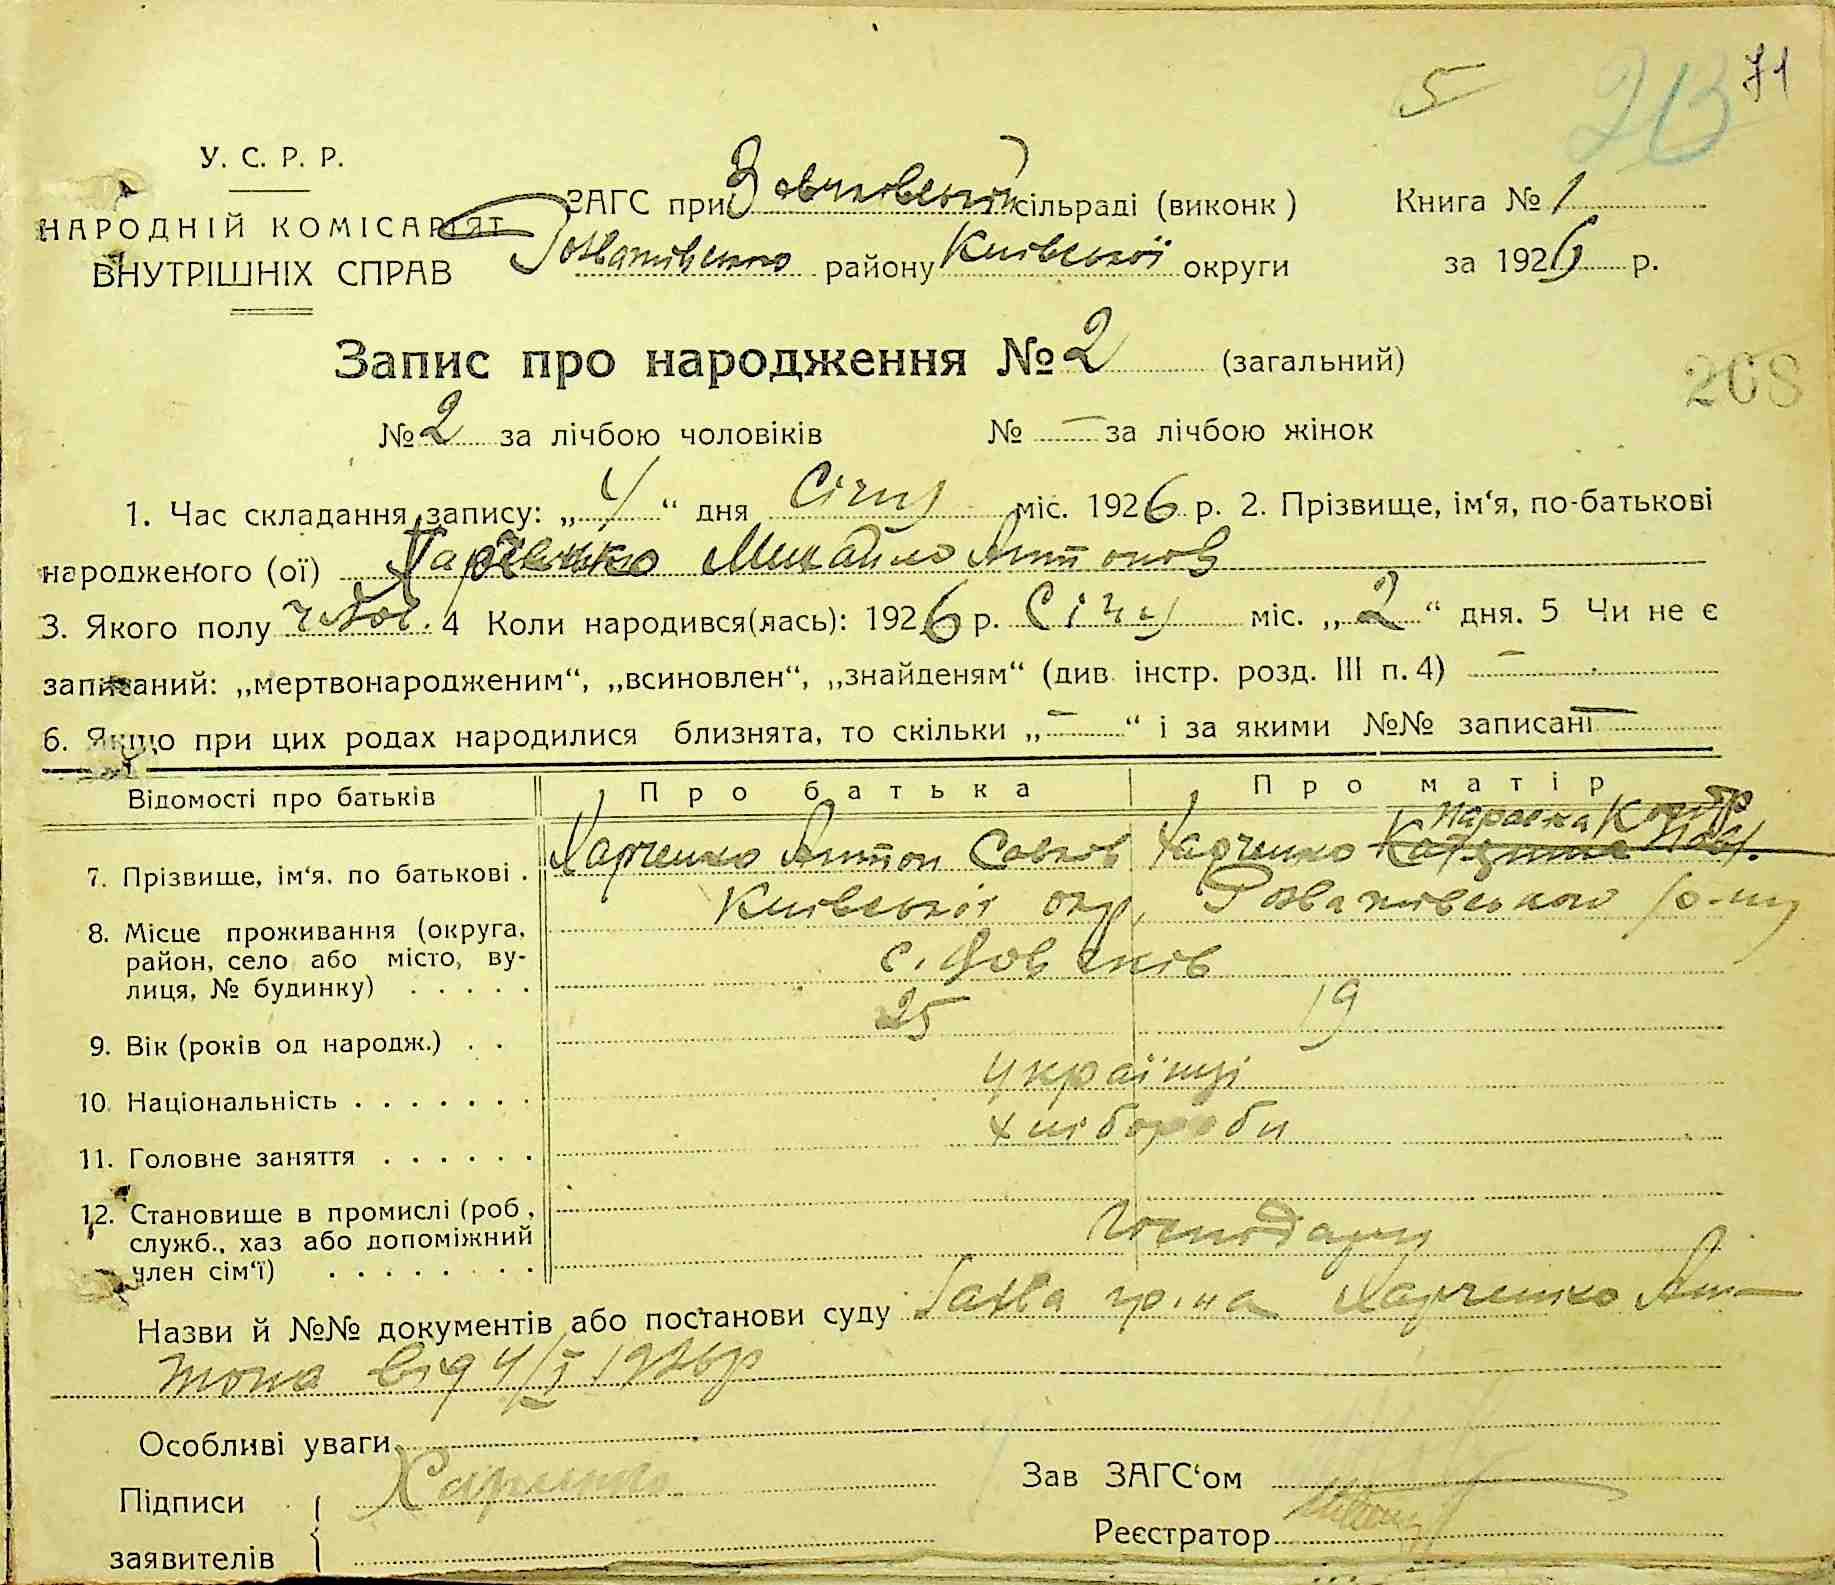 5 213 71
У. С. Р. Р.
НАРОДНІЙ КОМІСАРІЯТ
ВНУТРІШНІХ СПРАВ
ЗАГС при Зовчковській сільраді (виконк)
Розважівського району Київської округи
Книга № 1
за 1926 р.
Запис про народження № 2 (загальний)
268
№ 2 за лічбою чоловіків № — за лічбою жінок
1. Час складання запису: „4“ дня Січня міс. 1926 р. 2. Прізвище, ім‘я, по-батькові
народженого (ої) Харченко Михайло Антонов
3. Якого полу чолов. 4 Коли народився(лась): 1926 р. Січня міс. „2“ дня. 5 Чи не є
записаний: „мертвонародженим“, „всиновлен“, „знайденям“ (див. інстр. розд. III п. 4) —
6. Якщо при цих родах народилися близнята, то скільки „—“ і за якими №№ записані —
Відомості про батьків Про батька Про матір
Параска
7. Прізвище, ім‘я, по батькові . Харченко Антон Савков Харченко
8. Місце проживання (округа, район, село або місто, вулиця, № будинку) . . . . . Київської окр. Розважівського р-ну
с.
9. Вік (років од народж.) . . 25 19
10. Національність . . . . . . . українці
11. Головне заняття . . . . . . хлібороби
12. Становище в промислі (роб., служб., хаз або допоміжний член сім‘ї) . . . . . . . . господарі
Назви й №№ документів або постанови суду Заява гр-на Харченко Ан-
тона від 4/I 1926р
Особливі уваги
Підписи
заявителів
Харченко
Зав ЗАГС‘ом
Реєстратор